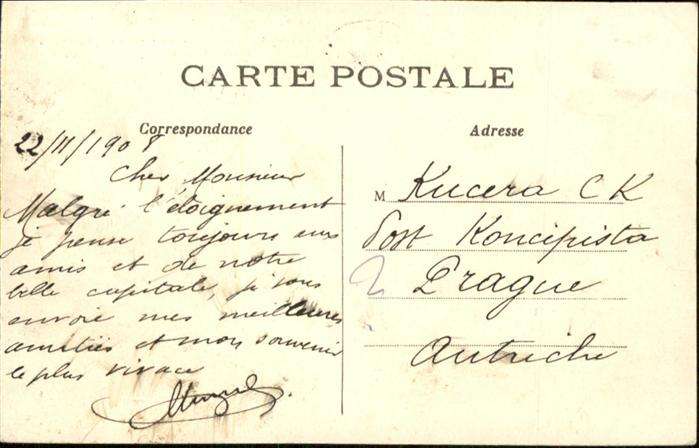 CARTE POSTALE
Correspondance
Adresse
22/11/1908
Cher Monsieur
Malgré l'éloignement
je pense toujours aux
amis et de notre
belle capitale, je vous
envoie mes meilleures
amitiés et mon souvenir
le plus vivace
M Kucera C K
Post Koncipista
Prague
Autriche